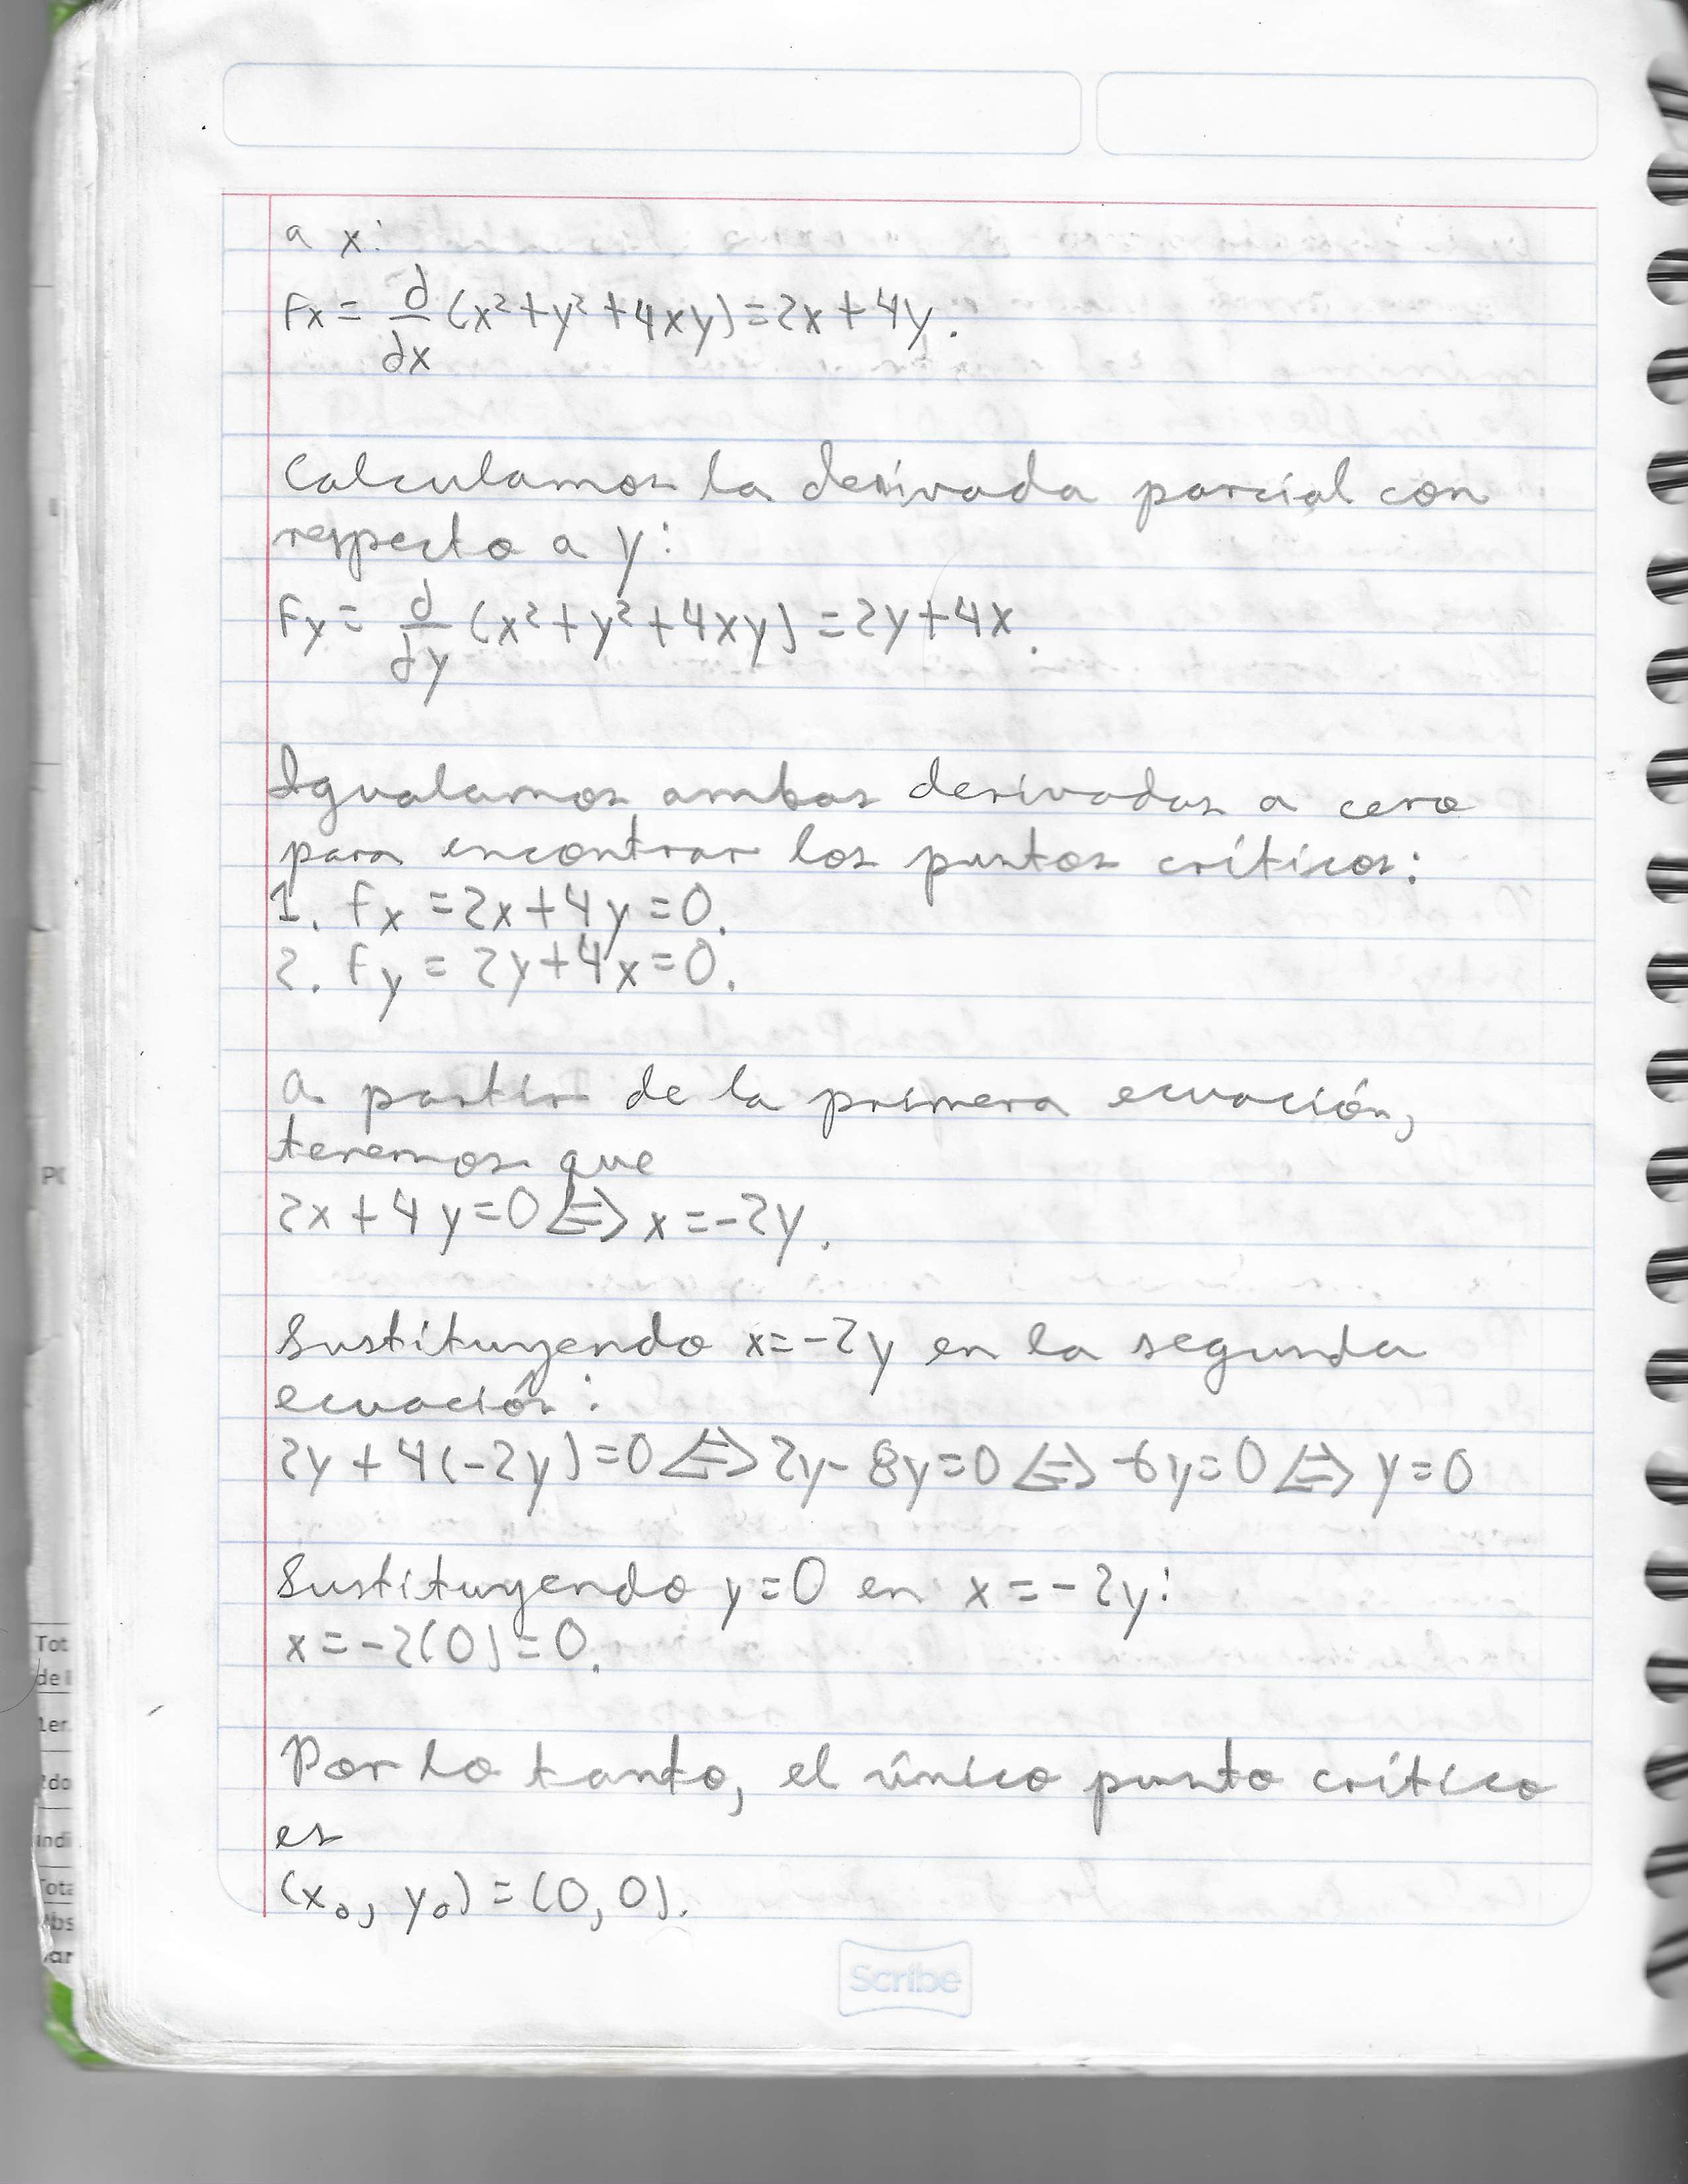 a x:
Fx = d/dx (x²+y²+4xy)=2x+4y.
Calculamos la derivada parcial con
respecto a y:
Fy = d/dy (x²+y²+4xy) = 2y+4x.
Igualamos ambas derivadas a cero
para encontrar los puntos críticos:
1. Fx = 2x+4y=0.
2. Fy = 2y+4x=0.
A partir de la primera ecuación,
tenemos que
2x+4y=0 ⇔ x=-2y.
Sustituyendo x=-2y en la segunda
ecuación:
2y+4(-2y)=0 ⇔ 2y-8y=0 ⇔ -6y=0 ⇔ y=0
Sustituyendo y=0 en x=-2y:
x=-2(0)=0.
Por lo tanto, el único punto crítico
es
(x₀, y₀) = (0,0).
Scribe
Tot
1er